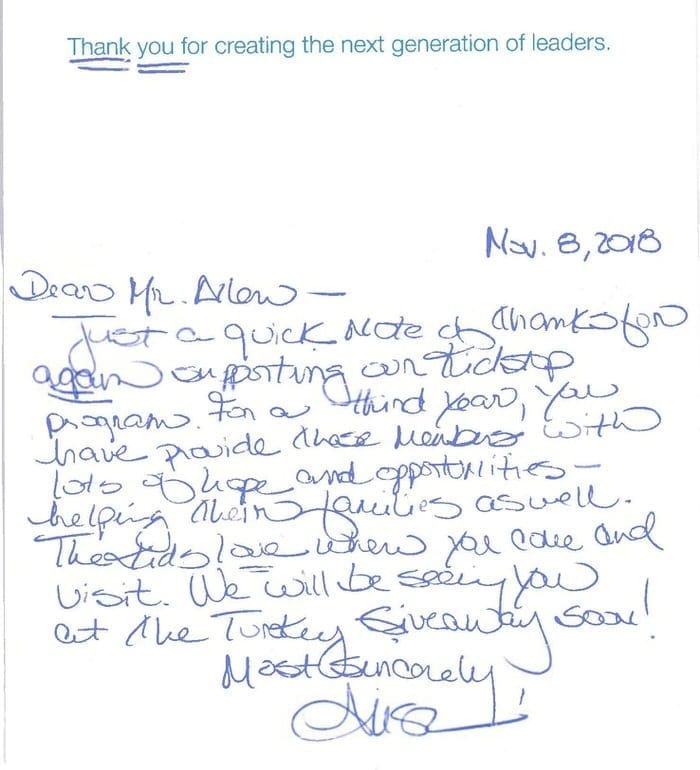 Thank you for creating the next generation of leaders.
Nov. 8, 2018
Dear Mr. Arlow —
Just a quick Note of Thanks for
again supporting our Kidstop
program. For a third year, you
have provide these Members with
lots of hope and opportunities —
helping their families as well.
The Kids love when you come and
visit. We will be seeing you
at the Turkey Giveaway soon!
Most Sincerely